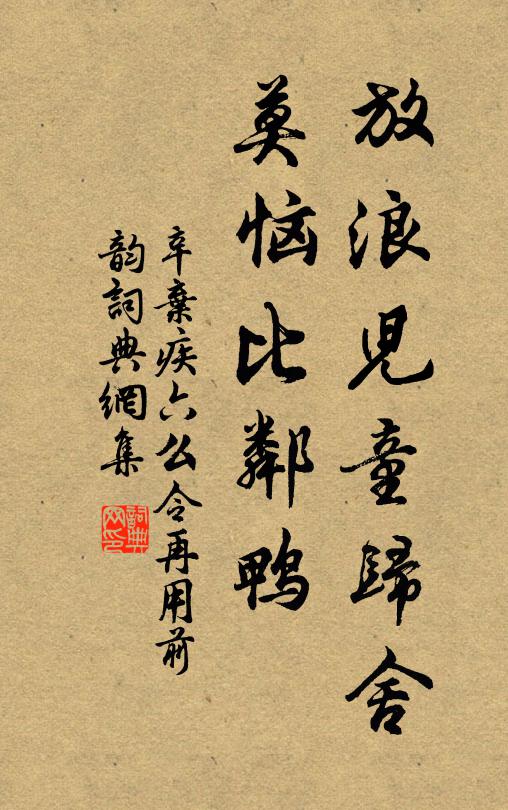 放浪兒童歸舍
莫惱比鄰鴨
辛棄疾六么令再用前
韵詞典網集
詞典網印